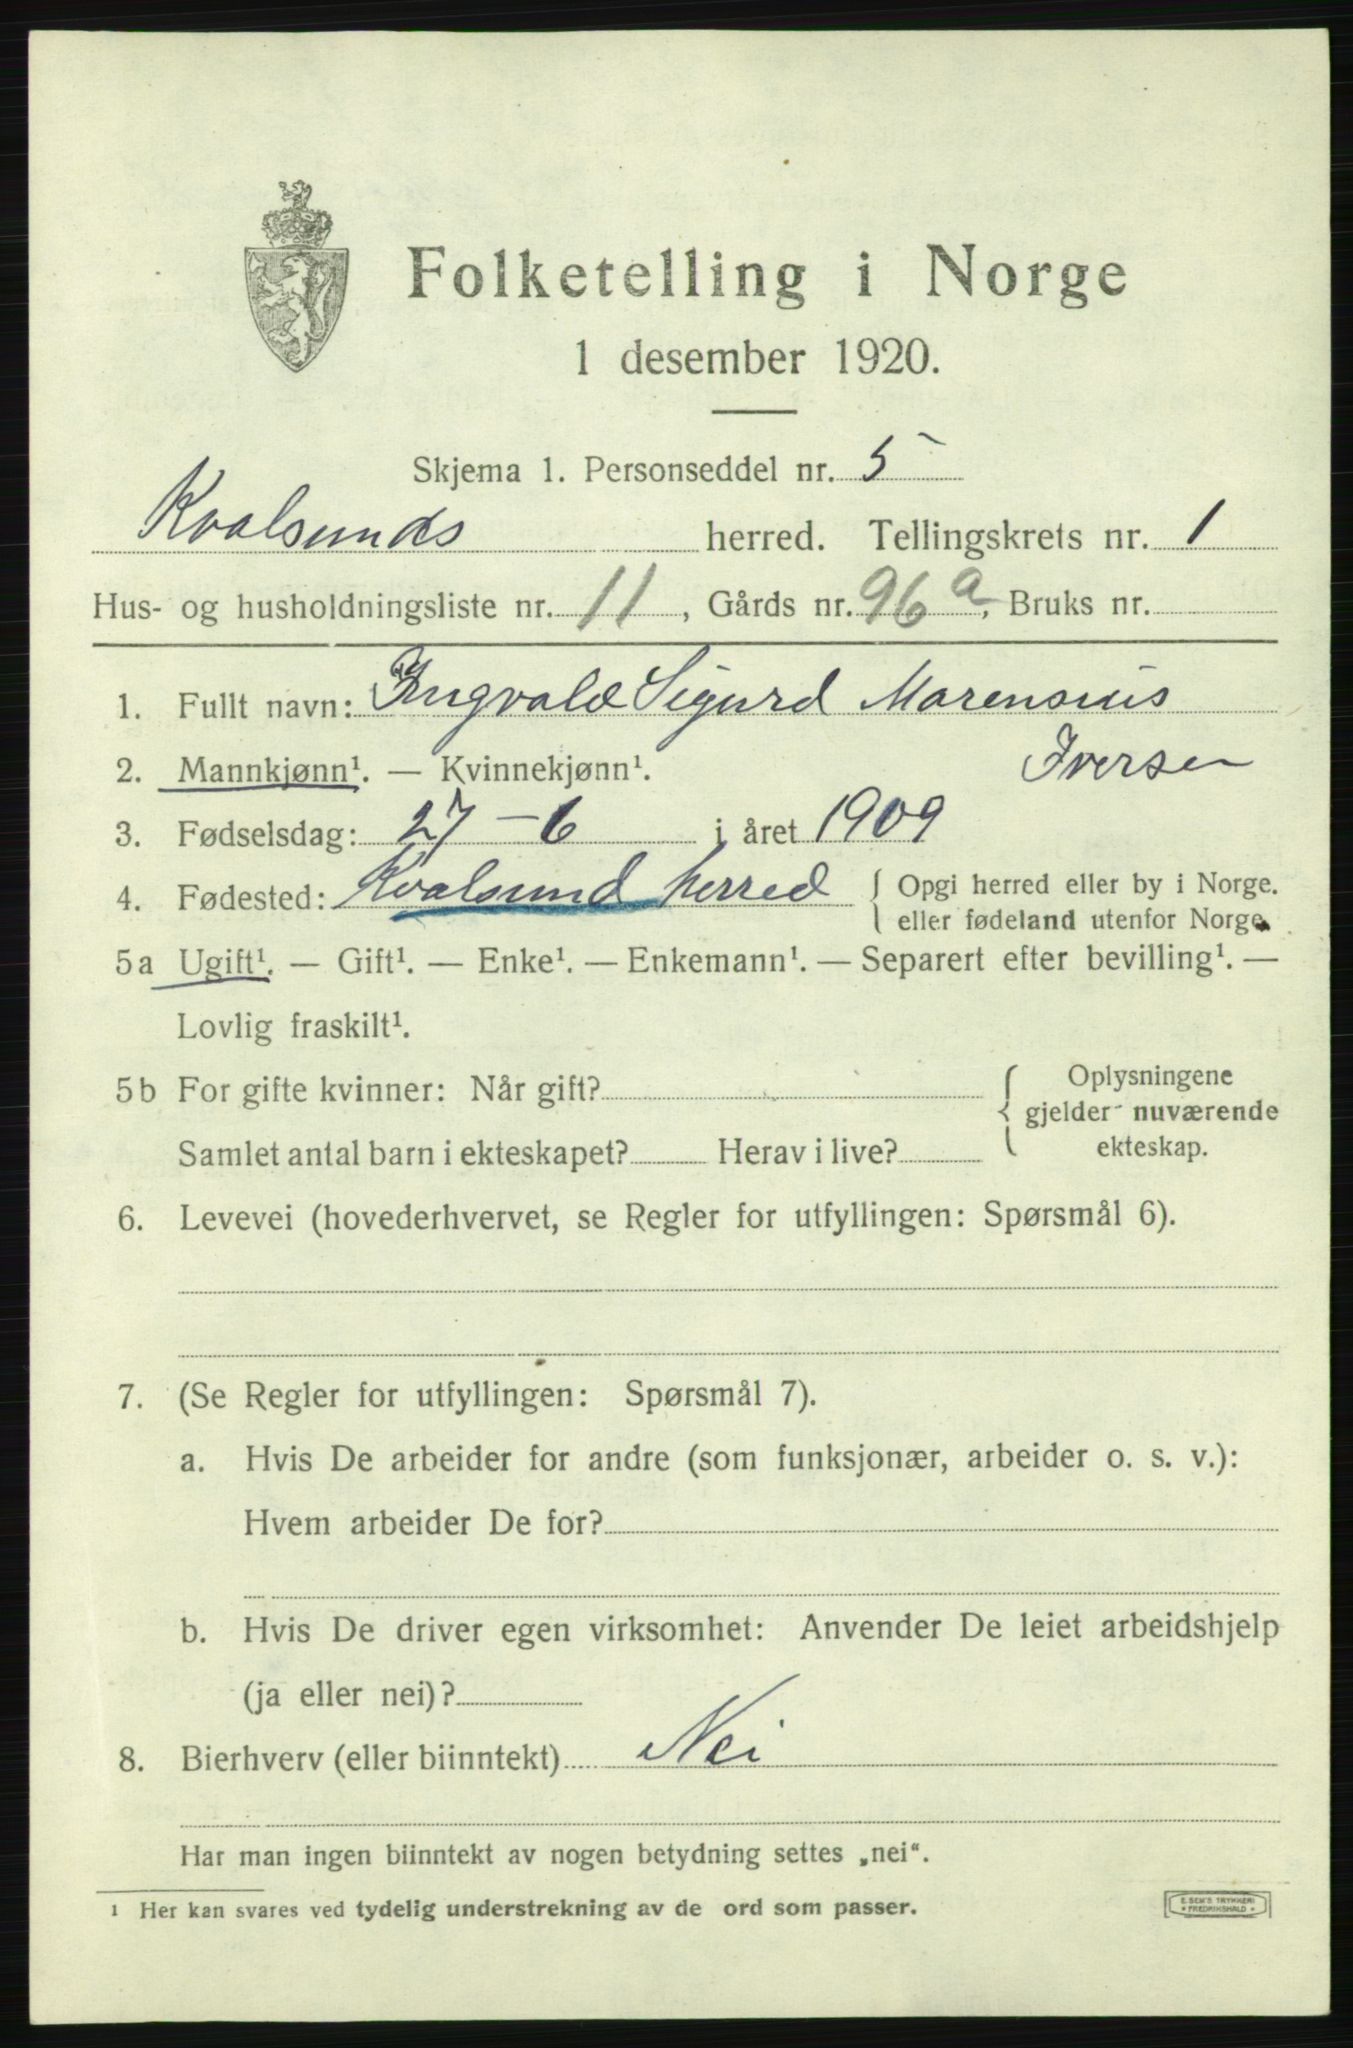 Folketelling i Norge
1 desember 1920.
Skjema 1. Personseddel nr. 5
Kvalsunds herred. Tellingskrets nr. 1
Hus- og husholdningsliste nr. 11, Gårds nr. 96a, Bruks nr.
1. Fullt navn: Ingvald Sigurd Marensius
2. Mannkjønn¹. — Kvinnekjønn¹. Iversen
3. Fødselsdag: 27-6 i året 1909
4. Fødested: Kvalsund herred { Opgi herred eller by i Norge.
eller fødeland utenfor Norge.
5a Ugift¹. — Gift¹. — Enke¹. — Enkemann¹. — Separert efter bevilling¹. —
Lovlig fraskilt¹.
5b For gifte kvinner: Når gift? { Oplysningene
gjelder nuværende
Samlet antal barn i ekteskapet? Herav i live? ekteskap.
6. Levevei (hovederhvervet, se Regler for utfyllingen: Spørsmål 6).
7. (Se Regler for utfyllingen: Spørsmål 7).
a. Hvis De arbeider for andre (som funksjonær, arbeider o. s. v.):
Hvem arbeider De for?
b. Hvis De driver egen virksomhet: Anvender De leiet arbeidshjelp
(ja eller nei)?
8. Bierhverv (eller biinntekt) Nei
Har man ingen biinntekt av nogen betydning settes „nei“.
¹ Her kan svares ved tydelig understrekning av de ord som passer.
E. SEM'S TRYKKERI
* FREDRIKSHALD *